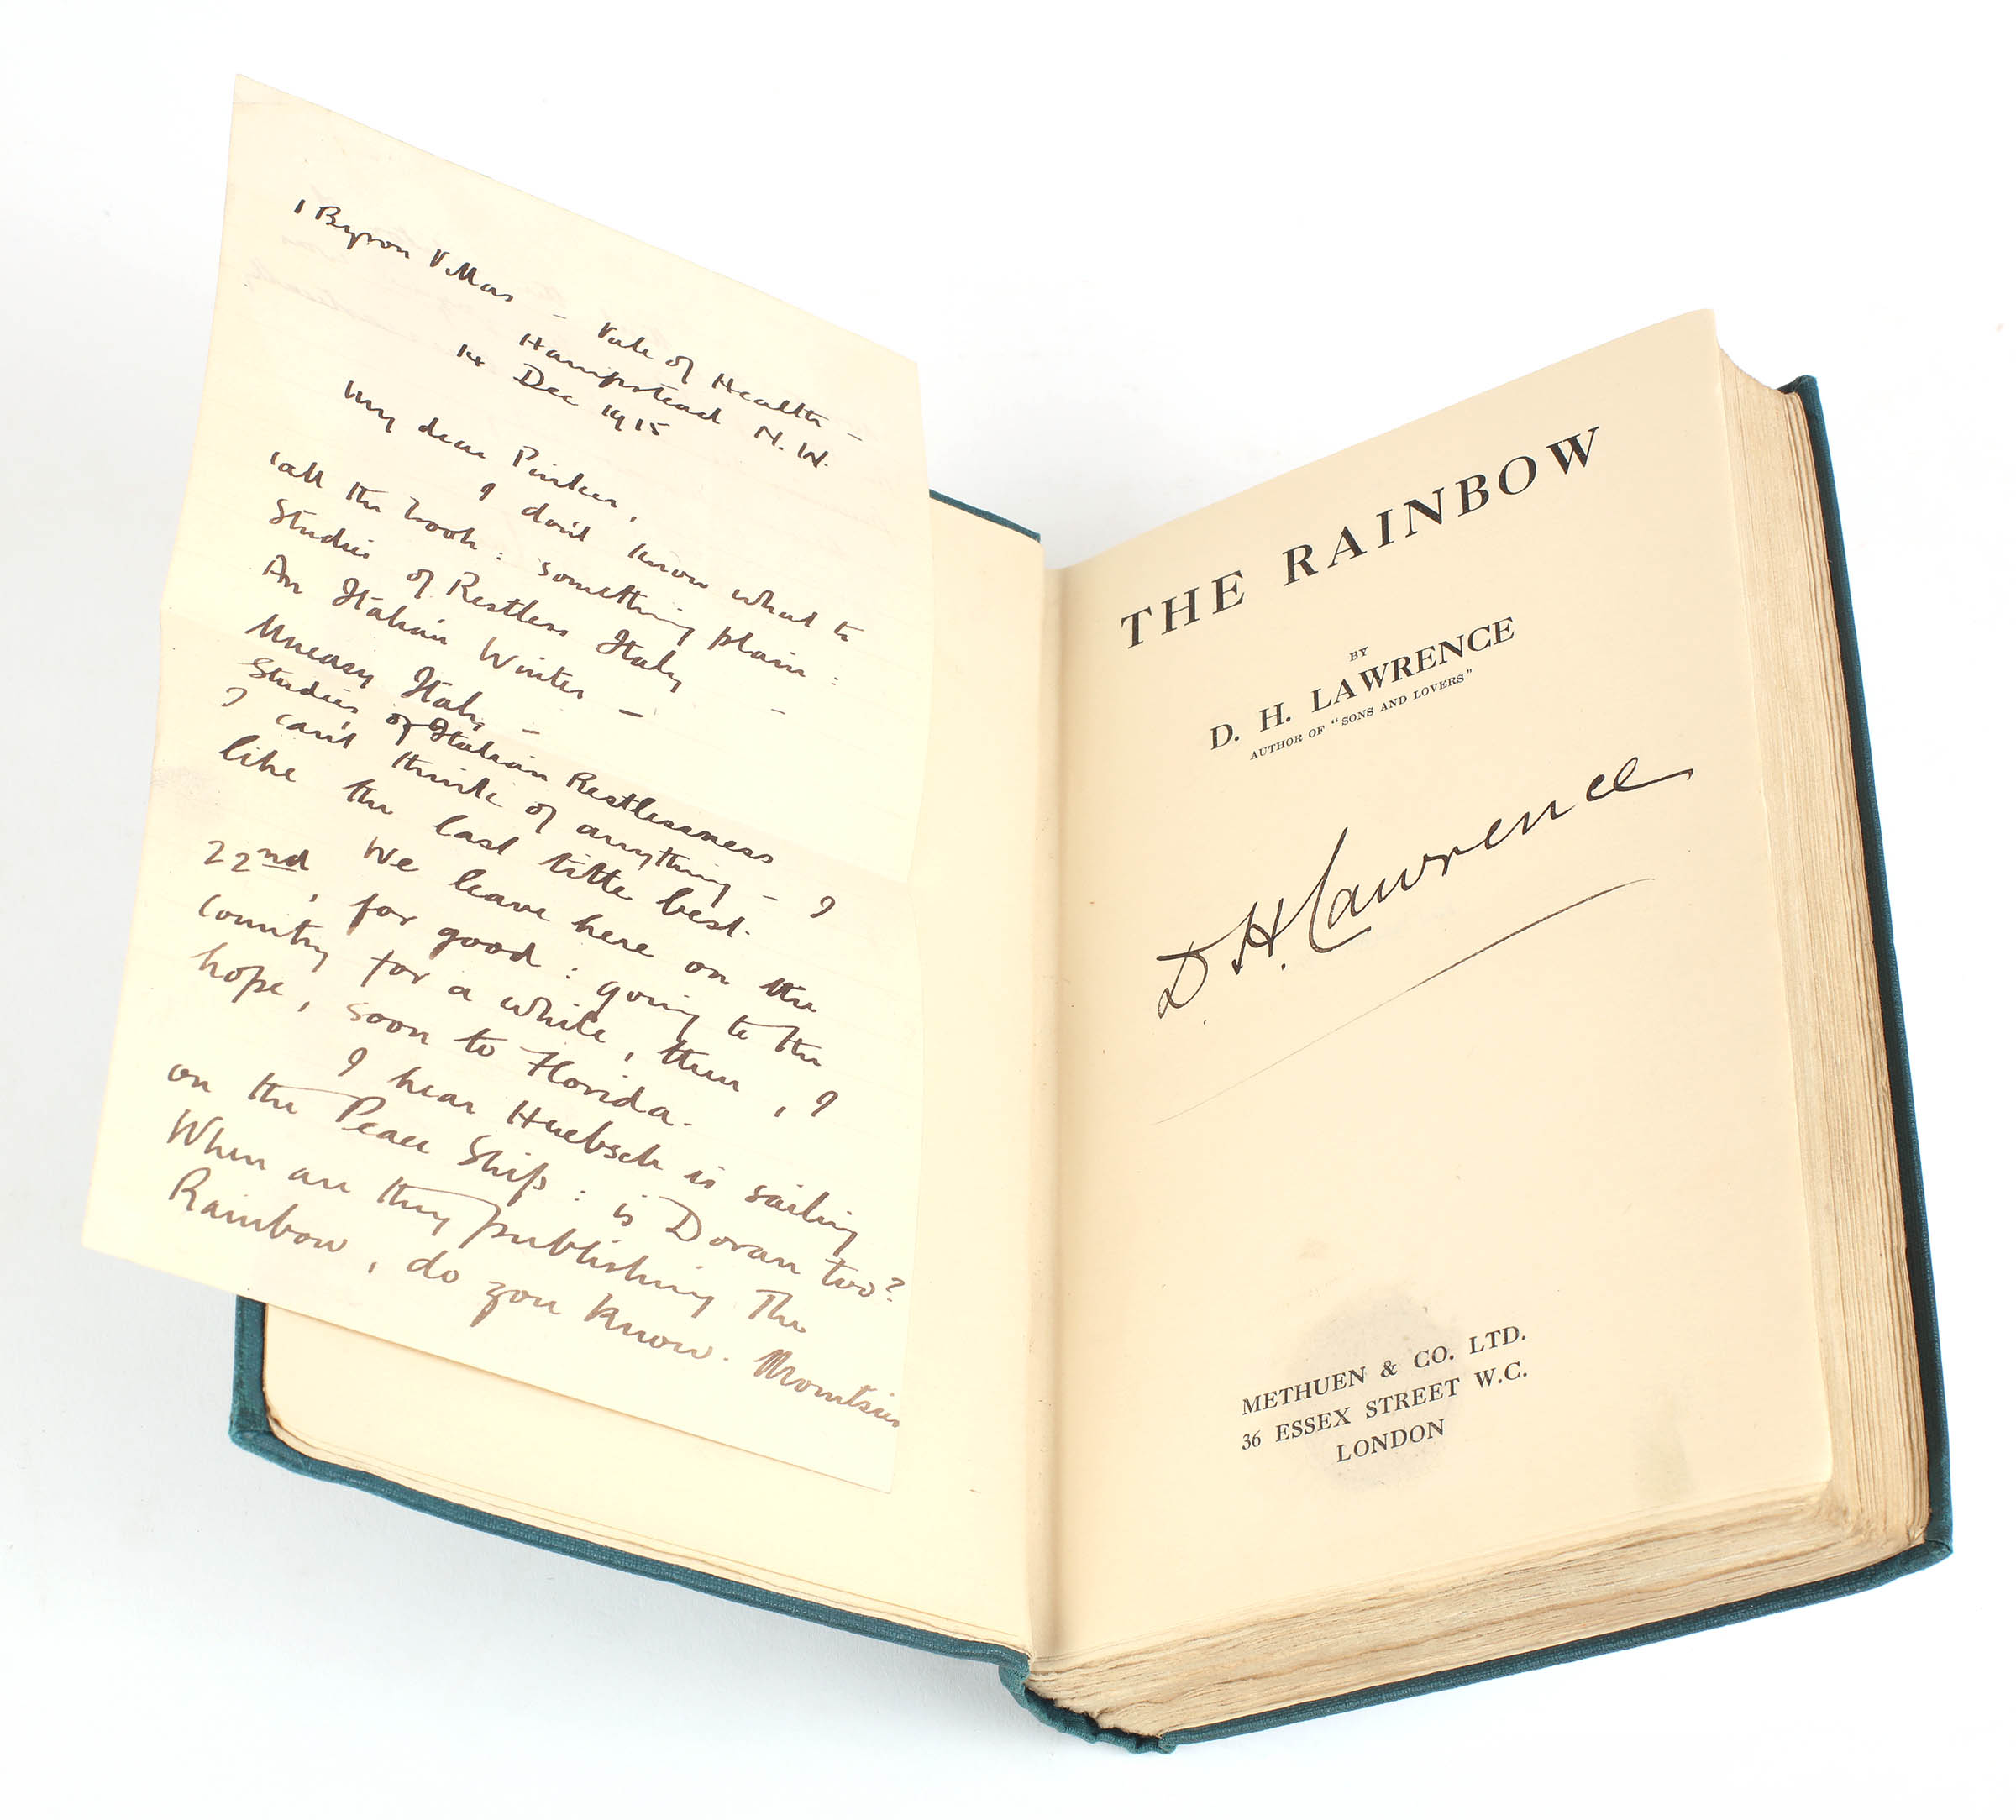 1 Byron Villas – Vale of Health –
Hampstead N.W.
14 Dec 1915
My dear Pinker,
I don't know what to
call the book: something plain:
Studies of Restless Italy –
An Italian Winter –
Uneasy Italy –
Studies of Italian Restlessness
I can't think of anything – I
like the last title best.
We leave here on the
22nd, for good: going to the
country for a while, then, I
hope, soon to Florida.
I hear Huebsch is sailing
on the Peace Ship: is Doran too?
When are they publishing The
Rainbow, do you know. Mountsier
THE RAINBOW
BY
D. H. LAWRENCE
AUTHOR OF "SONS AND LOVERS"
D. H. Lawrence
METHUEN & CO. LTD.
36 ESSEX STREET W.C.
LONDON